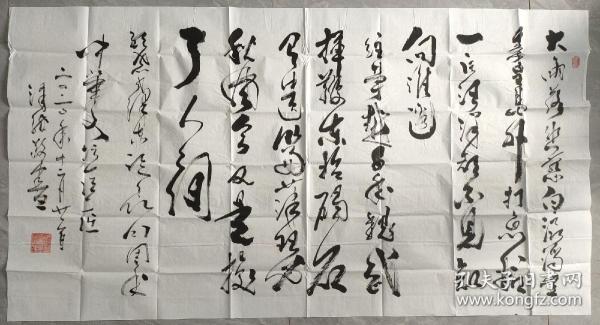 大雨落幽燕白浪滔天
秦皇岛外打鱼船
一片汪洋都不见知
向谁边
往事越千年魏武
挥鞭东临碣石
有遗篇萧瑟
秋風今又是换
了人间
毛泽东
中华文
年十二月廿
敬书
孔夫子旧书网
www.kongfz.com